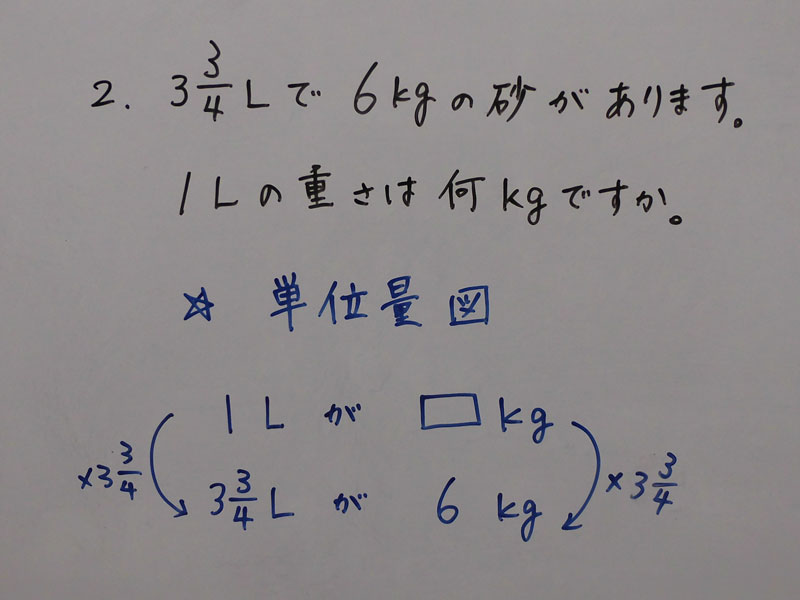 2. 3 3/4 L で 6kg の 砂 が あります。
1 L の 重さは 何 kg ですか。
☆ 単位量図
1 L が □ kg
×3 3/4 ×3 3/4
3 3/4 L が 6 kg